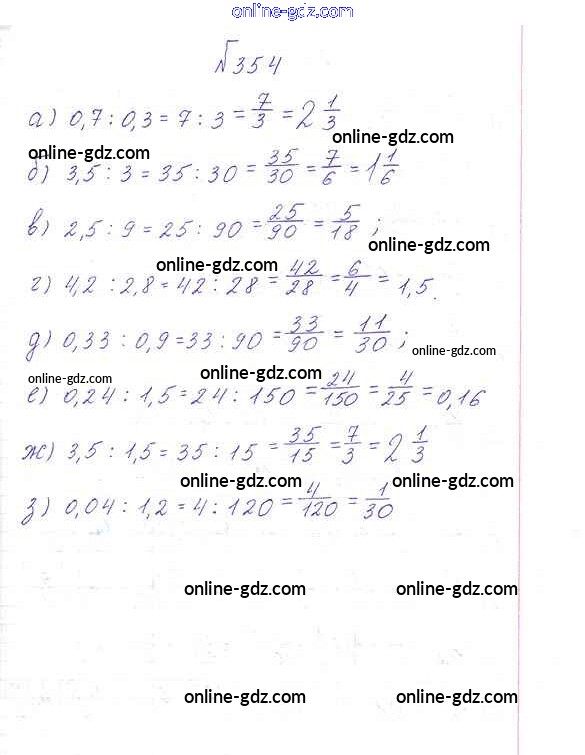 online-gdz.com
№354
а) 0,7 : 0,3 = 7 : 3 = 7/3 = 2 1/3
online-gdz.com
online-gdz.com
б) 3,5 : 3 = 35 : 30 = 35/30 = 7/6 = 1 1/6
в) 2,5 : 9 = 25 : 90 = 25/90 = 5/18 ;
online-gdz.com
online-gdz.com
г) 4,2 : 2,8 = 42 : 28 = 42/28 = 6/4 = 1,5.
д) 0,33 : 0,9 = 33 : 90 = 33/90 = 11/30 ;
online-gdz.com
online-gdz.com
online-gdz.com
е) 0,24 : 1,5 = 24 : 150 = 24/150 = 4/25 = 0,16
ж) 3,5 : 1,5 = 35 : 15 = 35/15 = 7/3 = 2 1/3
online-gdz.com
online-gdz.com
з) 0,04 : 1,2 = 4 : 120 = 4/120 = 1/30
online-gdz.com
online-gdz.com
online-gdz.com
online-gdz.com